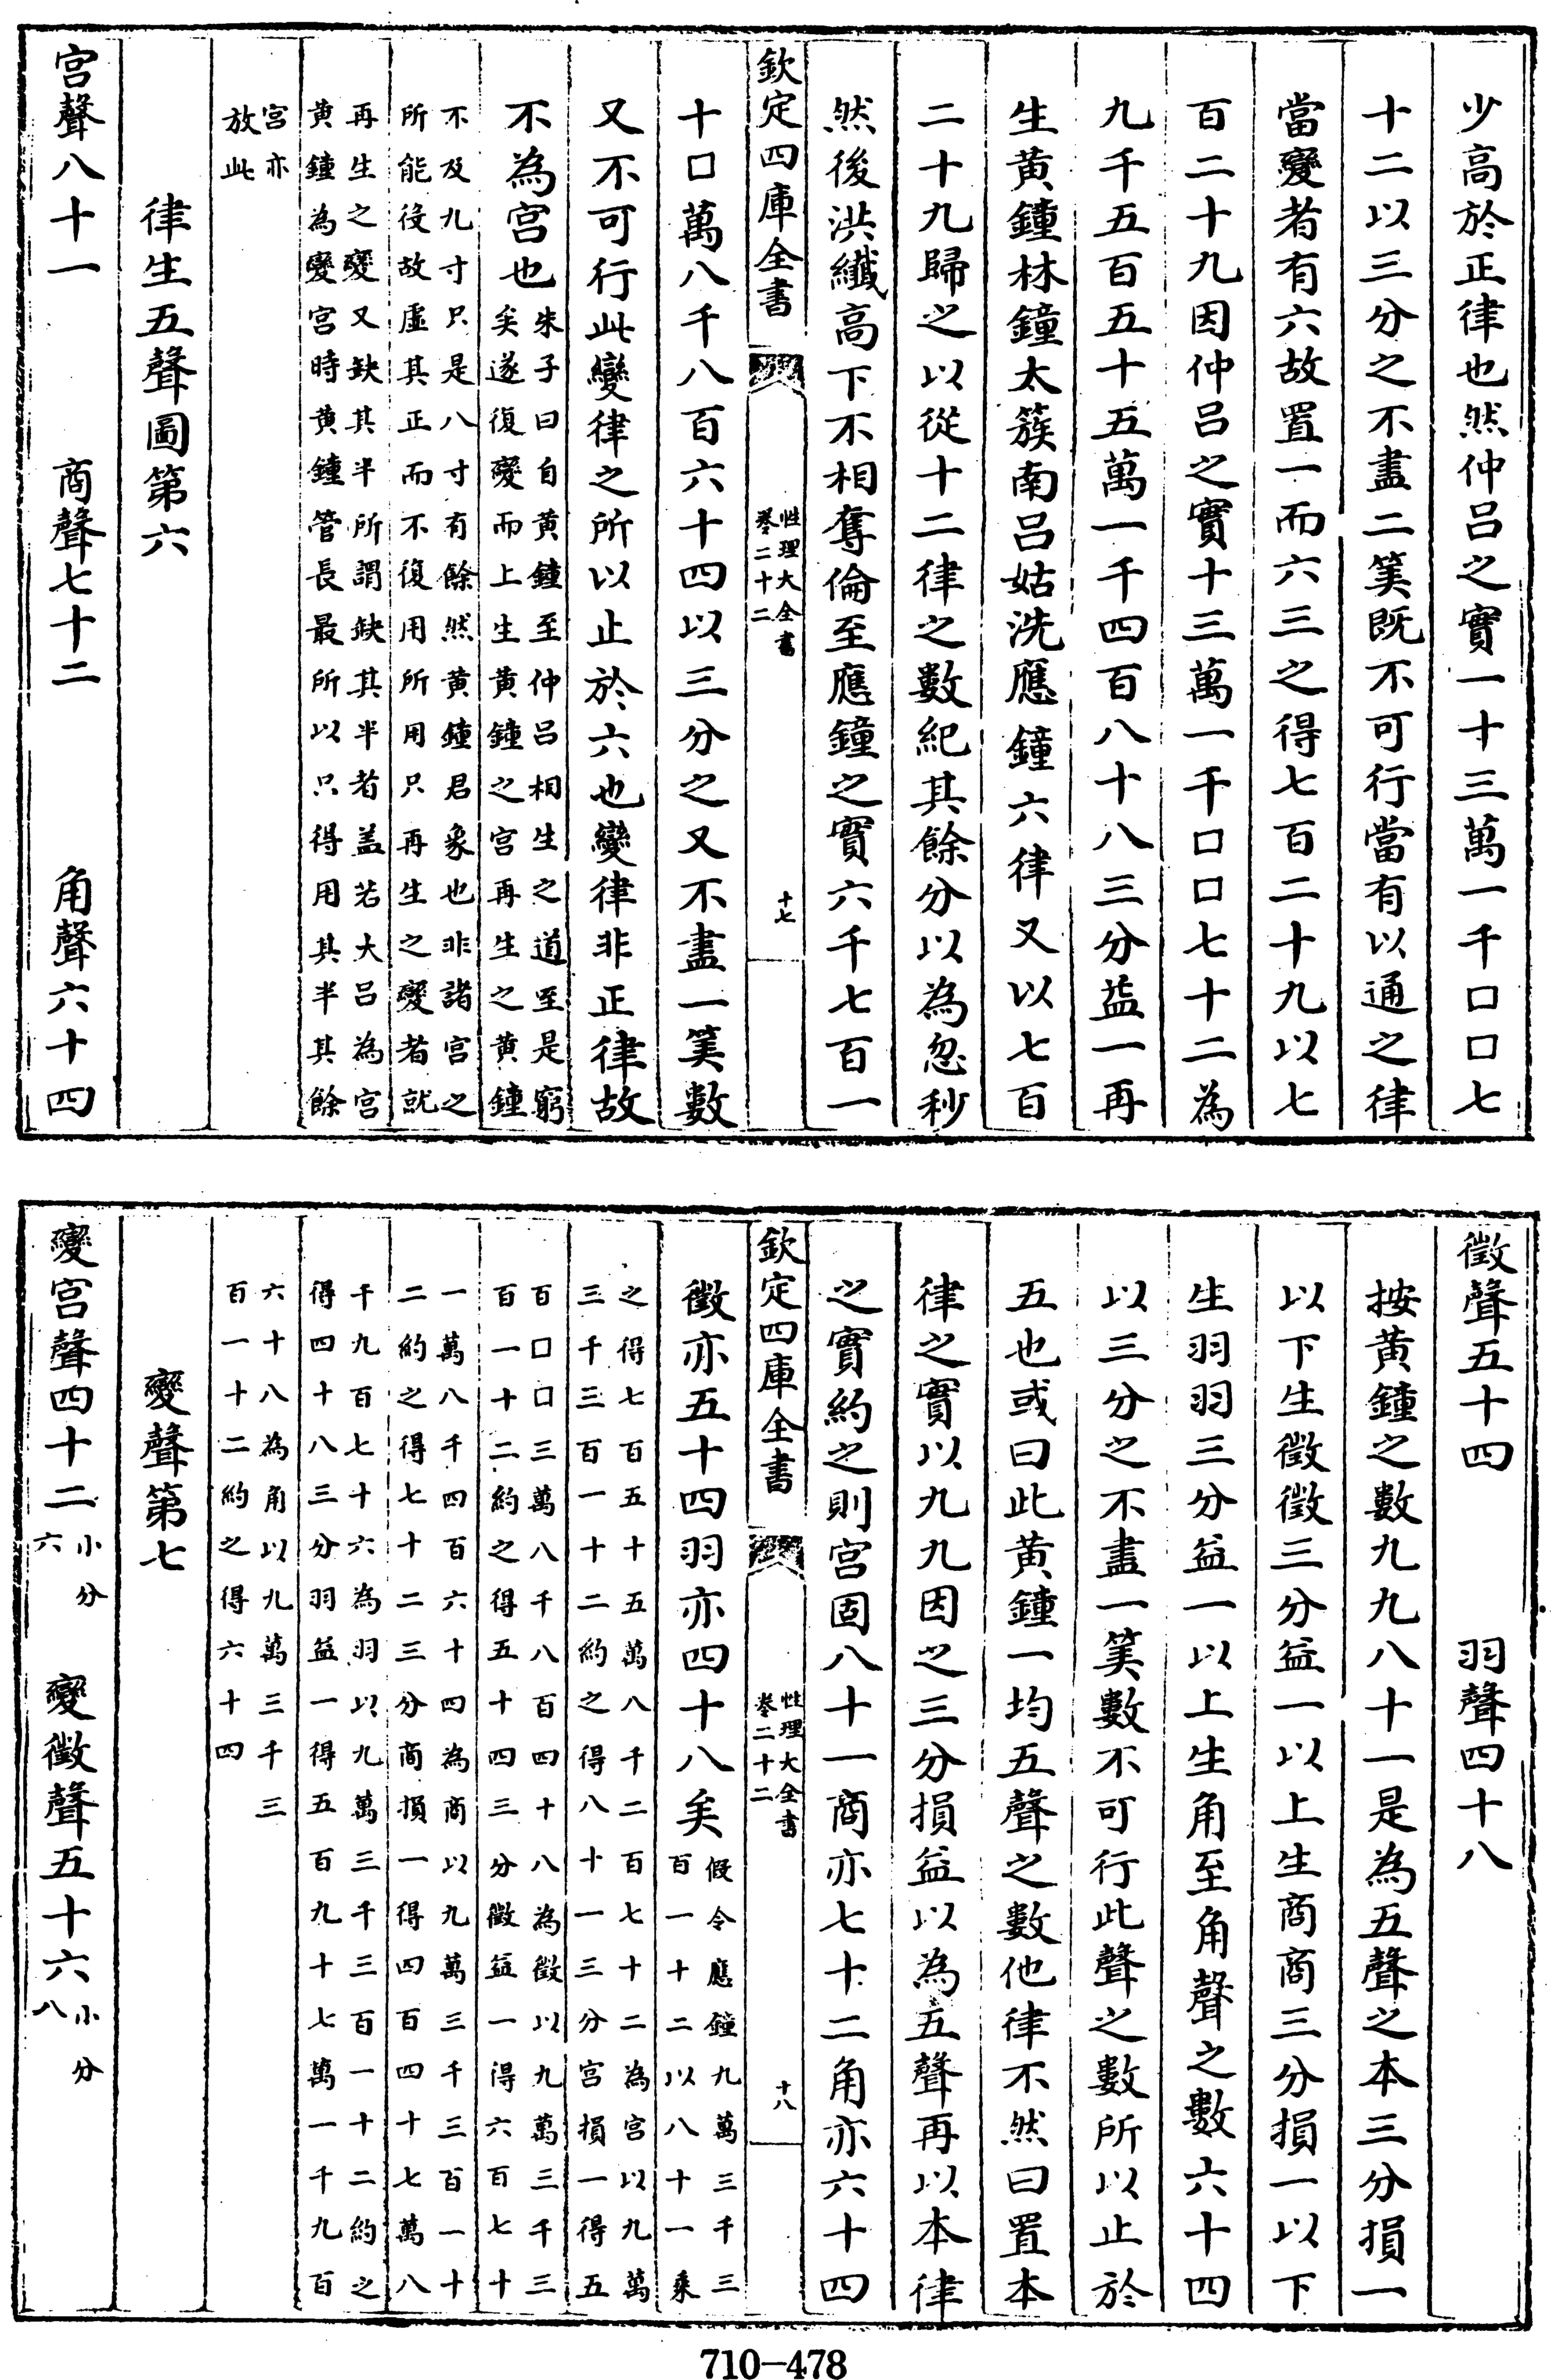 少高於正律也然仲吕之實一十三萬一千口口七
十二以三分之不盡二筭既不可行當有以通之律
當變者有六故置一而六三之得七百二十九以七
百二十九因仲吕之實十三萬一千口口七十二為
九千五百五十五萬一千四百八十八三分益一再
生黄鐘林鐘太簇南吕姑洗應鐘六律又以七百
二十九歸之以從十二律之數紀其餘分以為忽秒
然後洪纖高下不相奪倫至應鐘之實六千七百一
欽定四庫全書
性理大全書
卷二十二
十七
十口萬八千八百六十四以三分之又不盡一筭數
又不可行此變律之所以止於六也變律非正律故
不為宫也
朱子曰自黄鐘至仲吕相生之道至是窮
矣遂復變而上生黄鐘之宫再生之黄鐘
不及九寸只是八寸有餘然黄鐘君象也非諸宫之
所能役故虚其正而不復用所用只再生之變者就
再生之變又缺其半所謂缺其半者盖若大吕為宫
黄鐘為變宫時黄鐘管長最所以只得用其半其餘
宫亦
放此
律生五聲圖第六
宫聲八十一 商聲七十二 角聲六十四
徵聲五十四 羽聲四十八
按黄鐘之數九九八十一是為五聲之本三分損一
以下生徵徵三分益一以上生商商三分損一以下
生羽羽三分益一以上生角至角聲之數六十四
以三分之不盡一筭數不可行此聲之數所以止於
五也或曰此黄鐘一均五聲之數他律不然曰置本
律之實以九九因之三分損益以為五聲再以本律
之實約之則宫固八十一商亦七十二角亦六十四
欽定四庫全書
性理大全書
卷二十二
十八
徵亦五十四羽亦四十八矣
假令應鐘九萬三千三
百一十二以八十一乘
之得七百五十五萬八千二百七十二為宫以九萬
三千三百一十二約之得八十一三分宫損一得五
百口口三萬八千八百四十八為徵以九萬三千三
百一十二約之得五十四三分徵益一得六百七十
一萬八千四百六十四為商以九萬三千三百一十
二約之得七十二三分商損一得四百四十七萬八
千九百七十六為羽以九萬三千三百一十二約之
得四十八三分羽益一得五百九十七萬一千九百
六十八為角以九萬三千三
百一十二約之得六十四
變聲第七
變宫聲四十二 小分六 變徵聲五十六 小分八
710-478